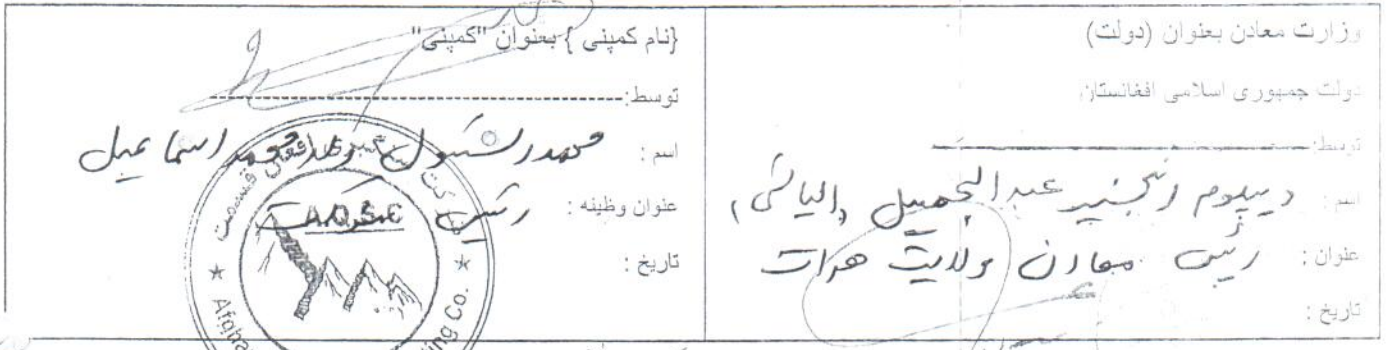 وزارت معادن بعنوان (دولت)
دولت جمهوری اسلامی افغانستان
توسط:
اسم : دیپلوم انجنیر عبدالجمیل
عنوان : رئیس معادن ولایت هرات
تاریخ :
{نام کمپنی } بعنوان "کمپنی"
توسط:
اسم : محمد رسول ولد محمد اسماعیل
عنوان وظیفه : رئیس شرکت
تاریخ :
A.Q.S.C
ing Co.